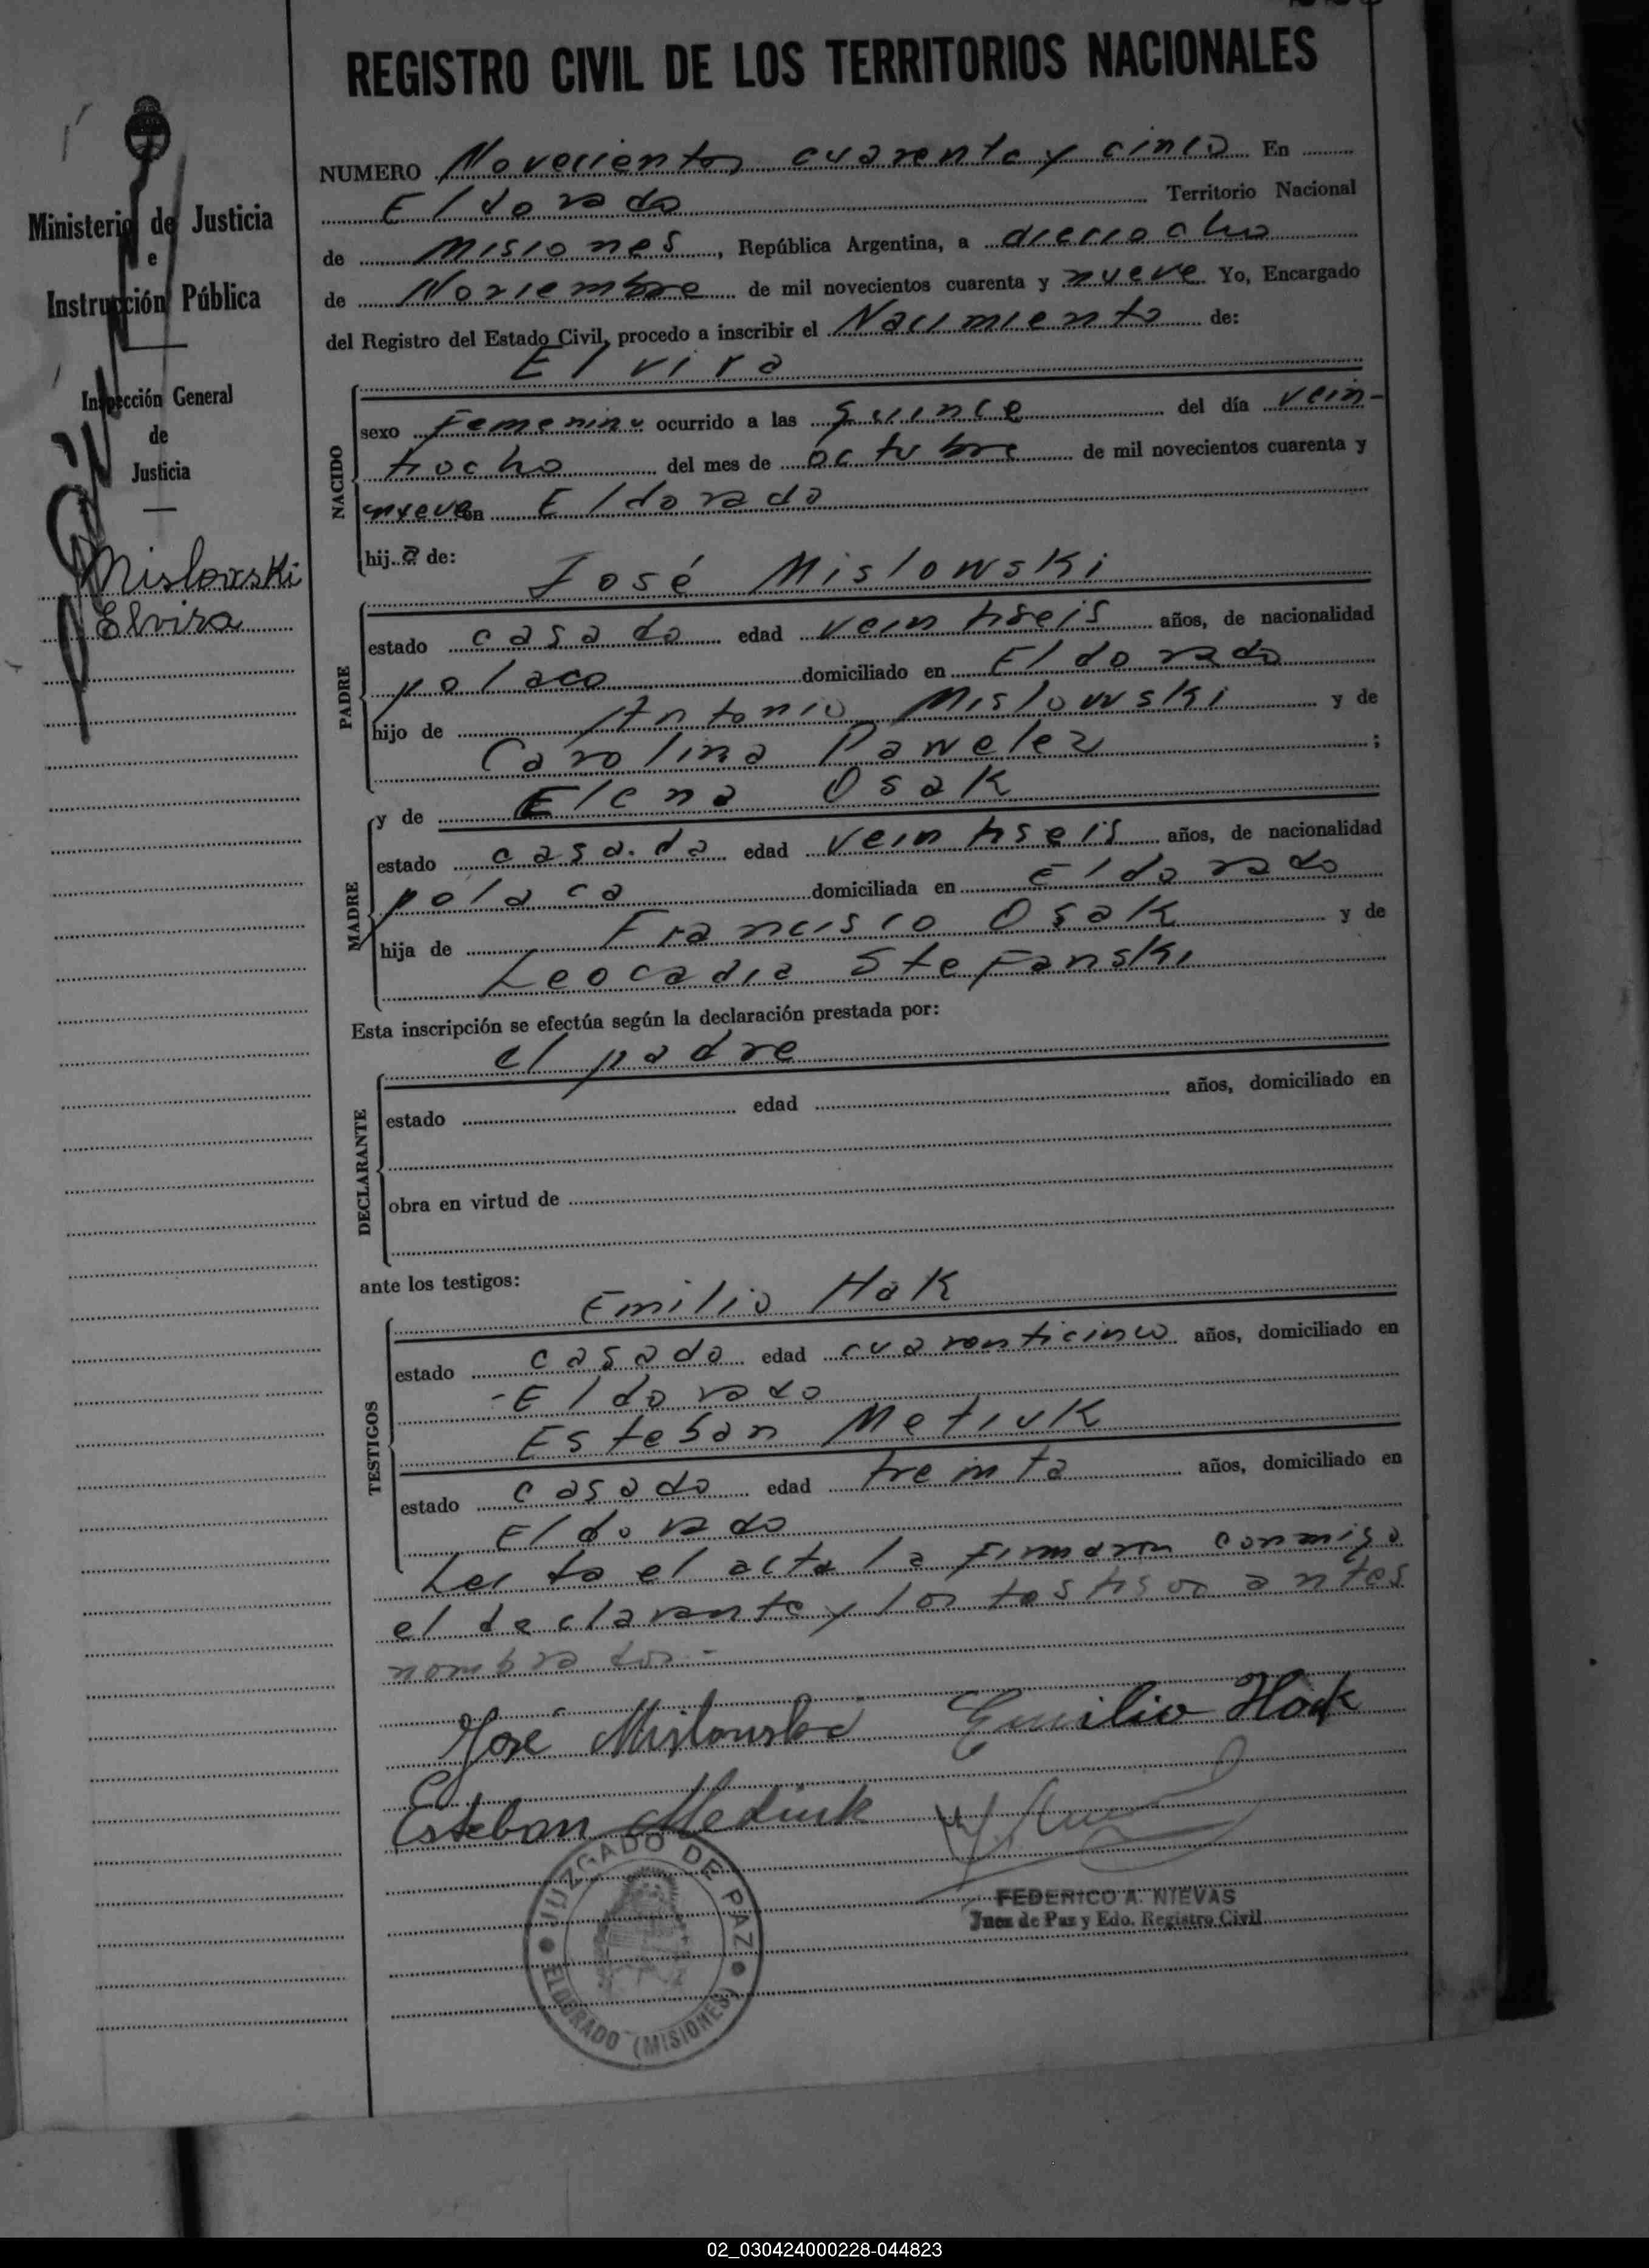 REGISTRO CIVIL DE LOS TERRITORIOS NACIONALES
Ministerio de Justicia
e
Instrucción Pública
Inspección General
de
Justicia
Mislowski
Elvira
NUMERO Novecientos cuarenta y cinco En
Eldorado Territorio Nacional
de Misiones, República Argentina, a dieciocho
de Noviembre de mil novecientos cuarenta y nueve Yo, Encargado
del Registro del Estado Civil, procedo a inscribir el Nacimiento de:
Elvira
NACIDO
sexo Femenino ocurrido a las quince del día vein-
tiocho del mes de octubre de mil novecientos cuarenta y
nueve en Eldorado
hij a de:
José Mislowski
PADRE
estado casado edad veintiseis años, de nacionalidad
polaco domiciliado en Eldorado
hijo de Antonio Mislowski y de
Carolina Pawelez ;
MADRE
y de Elena Osak
estado casada edad veintiseis años, de nacionalidad
polaca domiciliada en Eldorado
hija de Francisco Osak y de
Leocadia Stefanski
Esta inscripción se efectúa según la declaración prestada por:
el padre
DECLARANTE
estado edad años, domiciliado en
obra en virtud de
ante los testigos:
Emilio Hak
TESTIGOS
estado casado edad cuarenticinco años, domiciliado en
-Eldorado
Esteban Metiuk
estado casado edad treinta años, domiciliado en
Eldorado
Leido el acta la firmaron conmigo
el declarante y los testigos antes
nombrados.-
José Mislowski Emilio Hak
Esteban Mediuk
JUZGADO DE PAZ
ELDORADO (MISIONES)
FEDERICO A. NIEVAS
Juez de Paz y Edo. Registro Civil
02_030424000228-044823